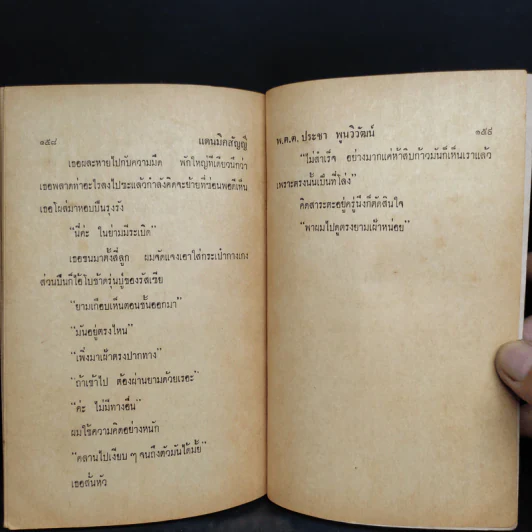 ๑๕๘ แดนมิคสัญญี
เธอผละหายไปกับความมืด พักใหญ่ทีเดียวนึกว่า
เธอพลาดท่าอะไรลงไปซะแล้วกำลังคิดจะย้ายที่ซ่อนพอดีเห็น
เธอโผล่มาหอบปืนรุงรัง
"นี่ค่ะ ในย่ามมีระเบิด"
เธอขนมาตั้งสี่ลูก ผมจัดแจงเอาใส่กระเป๋ากางเกง
ส่วนปืนก็ไอ้โบซ้าดรุ่นปู่ของรัสเซีย
"ยามเกือบเห็นตอนชั้นออกมา"
"มันอยู่ตรงไหน"
"เพิ่งมาเฝ้าตรงปากทาง"
"ถ้าเข้าไป ต้องผ่านยามด้วยเรอะ"
"ค่ะ ไม่มีทางอื่น"
ผมใช้ความคิดอย่างหนัก
"คลานไปเงียบ ๆ จนถึงตัวมันได้มั้ย"
เธอสั่นหัว
พ.ต.ต. ประชา พูนวิวัฒน์ ๑๕๙
"ไม่สำเร็จ อย่างมากแค่ห้าสิบก้าวมันก็เห็นเราแล้ว
เพราะตรงนั้นเป็นที่โล่ง"
คิดสาระตะอยู่ครู่นึงก็ตัดสินใจ
"พาผมไปดูตรงยามเฝ้าหน่อย"